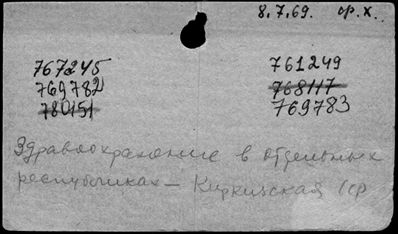 8.7.69. ср.х.
767245 761249
769782 768117
780151 769783
Здравоохранение в отдельных
республиках – Киргизская ССР